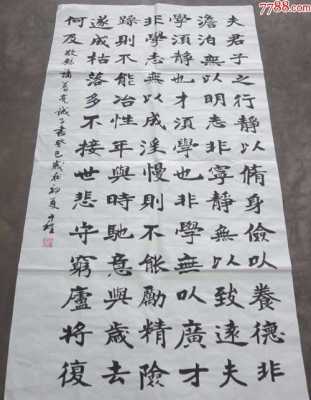 7788.com
夫君子之行靜以脩身儉以養德非
澹泊無以明志非寧靜無以致遠夫
學須靜也才須學也非學無以廣才
非學志無以成淫慢則不能勵精險
躁則不能冶性年與時馳意與歲去
遂成枯落多不接世悲守窮廬將復
何及 諸葛亮誡子書癸巳歲在初夏